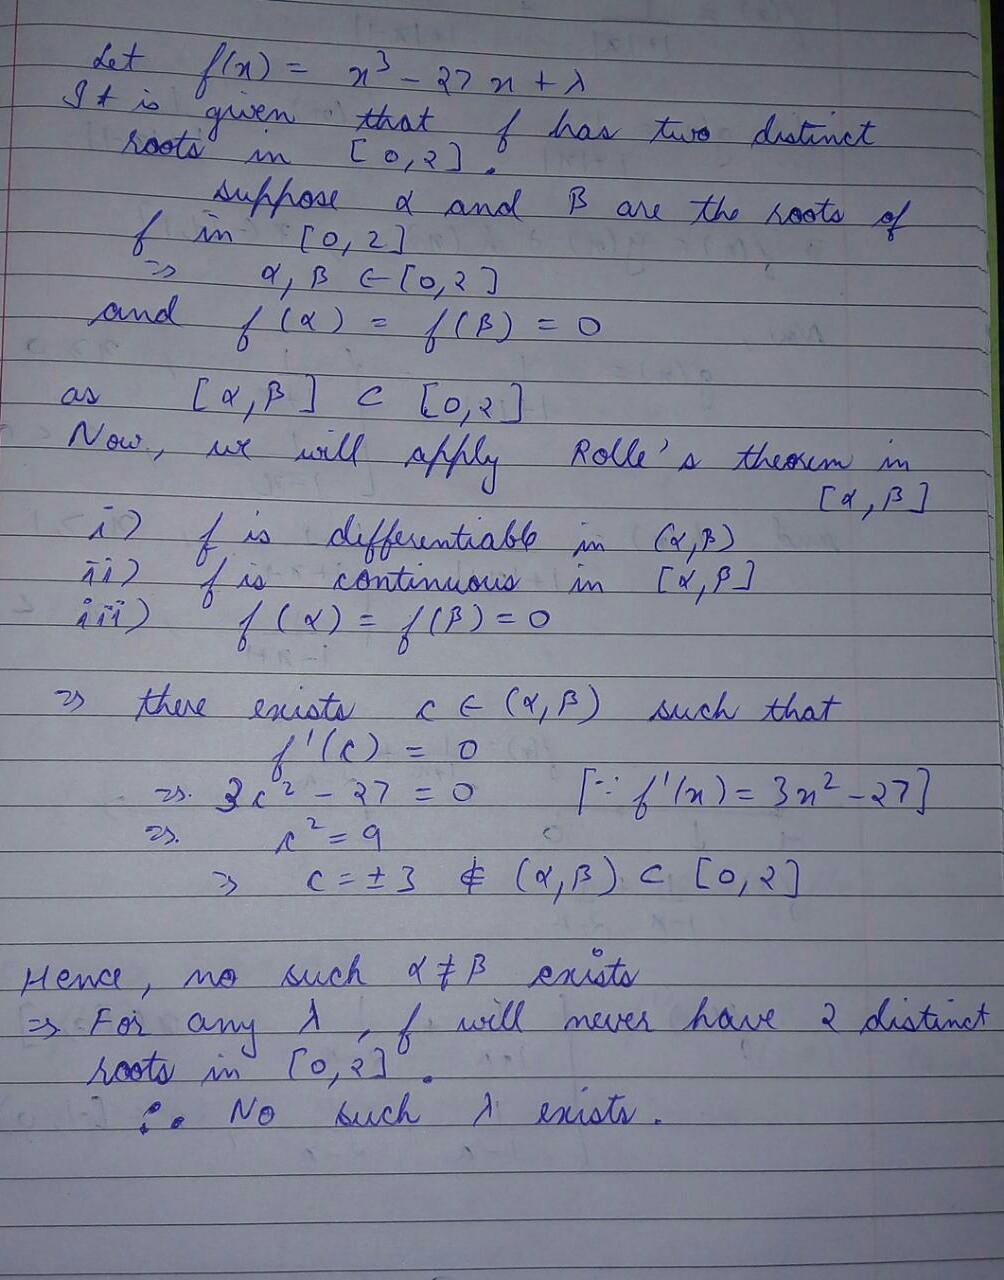 Let f(x) = x³ - 27x + λ
It is given that f has two distinct
roots in [0,2].
suppose α and β are the roots of
f in [0,2]
⇒ α, β ∈ [0,2]
and f(α) = f(β) = 0
as [α,β] ⊂ [0,2]
Now, we will apply Rolle's theorem in
[α,β]
i) f is differentiable in (α,β)
ii) f is continuous in [α,β]
iii) f(α) = f(β) = 0
⇒ there exists c ∈ (α,β) such that
f'(c) = 0
⇒ 3c² - 27 = 0 [∵ f'(x) = 3x² - 27]
⇒ c² = 9
⇒ c = ±3 ∉ (α,β) ⊂ [0,2]
Hence, no such α ≠ β exists
⇒ For any λ, f will never have 2 distinct
roots in [0,2].
∴ No such λ exists.